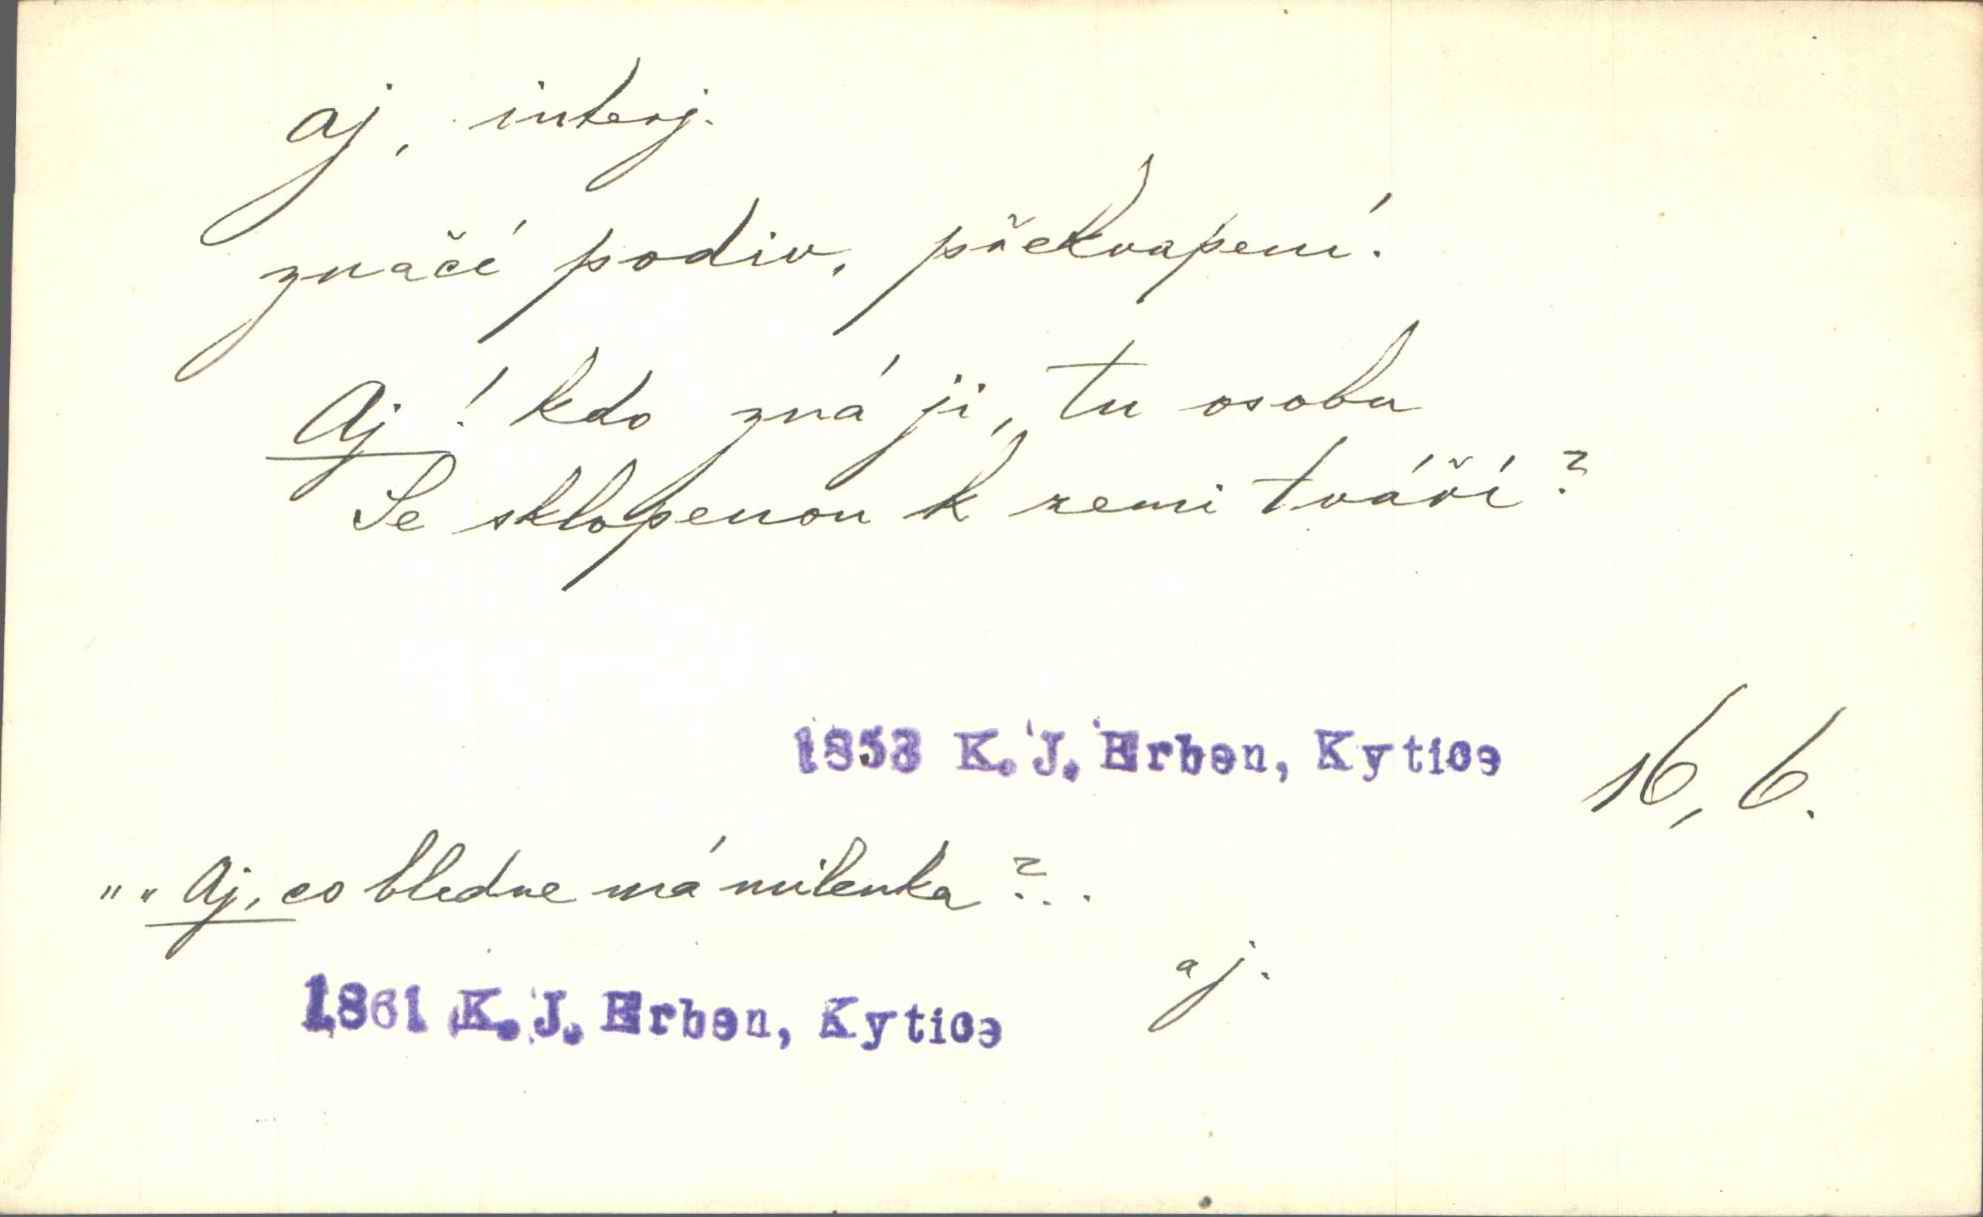 aj, interj.
značí podiv, překvapení.
Aj! kdo zná ji, tu osobu
Se sklopenou k zemi tváří?
1853 K. J. Erben, Kytice 16, 6.
„„ Aj, co bledne má milenka?..
aj.
1861 K. J. Erben, Kytice